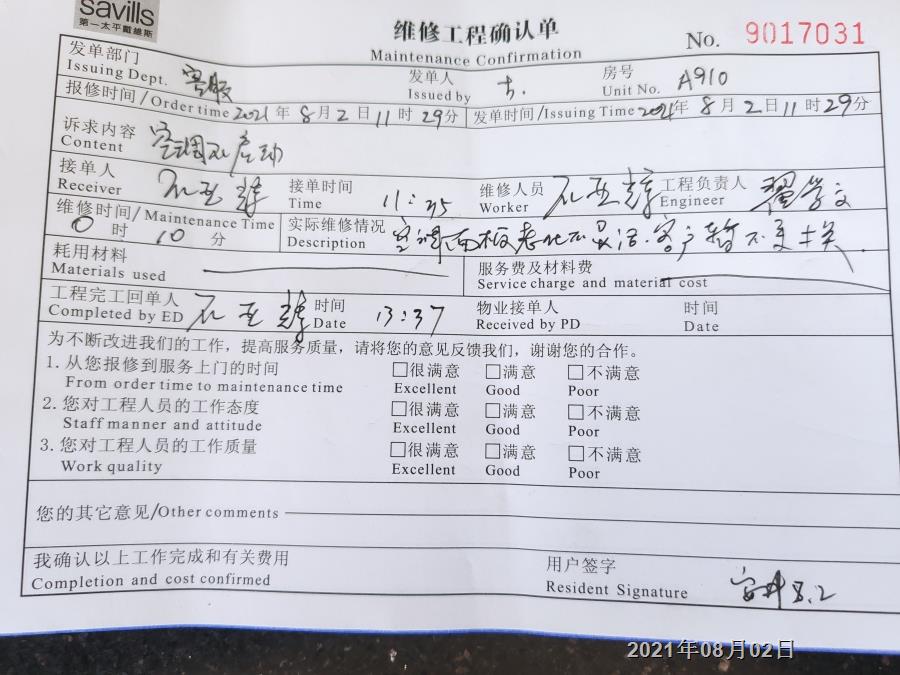 savills
第一太平戴維斯
维修工程确认单
Maintenance Confirmation
No. 9017031
发单部门
Issuing Dept. 客服
发单人
Issued by
房号
Unit No. A910
报修时间/Order time 2021年8月2日11时29分
发单时间/Issuing Time 2021年8月2日11时29分
诉求内容
Content 空调不启动
接单人
Receiver
接单时间
Time 11:35
维修人员
Worker
工程负责人
Engineer 翟学文
维修时间/Maintenance Time
0时10分
实际维修情况
Description 空调面板老化不灵活.客户暂不更换.
耗用材料
Materials used
服务费及材料费
Service charge and material cost
工程完工回单人
Completed by ED
时间
Date 13:37
物业接单人
Received by PD
时间
Date
为不断改进我们的工作，提高服务质量，请将您的意见反馈我们，谢谢您的合作。
1.从您报修到服务上门的时间 □很满意 □满意 □不满意
From order time to maintenance time Excellent Good Poor
2.您对工程人员的工作态度 □很满意 □满意 □不满意
Staff manner and attitude Excellent Good Poor
3.您对工程人员的工作质量 □很满意 □满意 □不满意
Work quality Excellent Good Poor
您的其它意见/Other comments
我确认以上工作完成和有关费用
Completion and cost confirmed
用户签字
Resident Signature 8.2
2021年08月02日